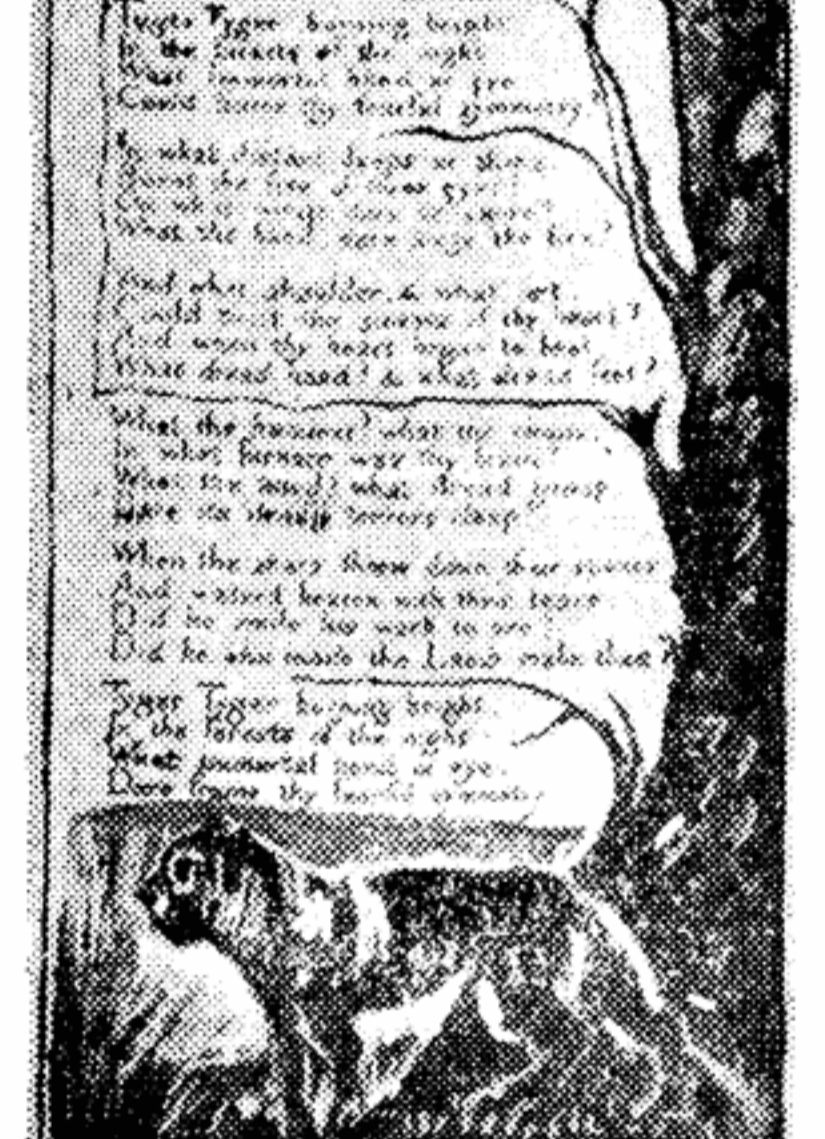 Tyger Tyger burning bright
In the forests of the night
What immortal hand or eye
Could frame thy fearful symmetry?
In what distant deeps or skies
Burnt the fire of thine eyes?
On what wings dare he aspire?
What the hand dare sieze the fire?
And what shoulder, & what art,
Could twist the sinews of thy heart?
And when thy heart began to beat
What dread hand? & what dread feet?
What the hammer? what the chain,
In what furnace was thy brain?
What the anvil? what dread grasp
Dare its deadly terrors clasp?
When the stars threw down their spears
And water'd heaven with their tears
Did he smile his work to see?
Did he who made the Lamb make thee?
Tyger Tyger burning bright
In the forests of the night
What immortal hand or eye
Dare frame thy fearful symmetry